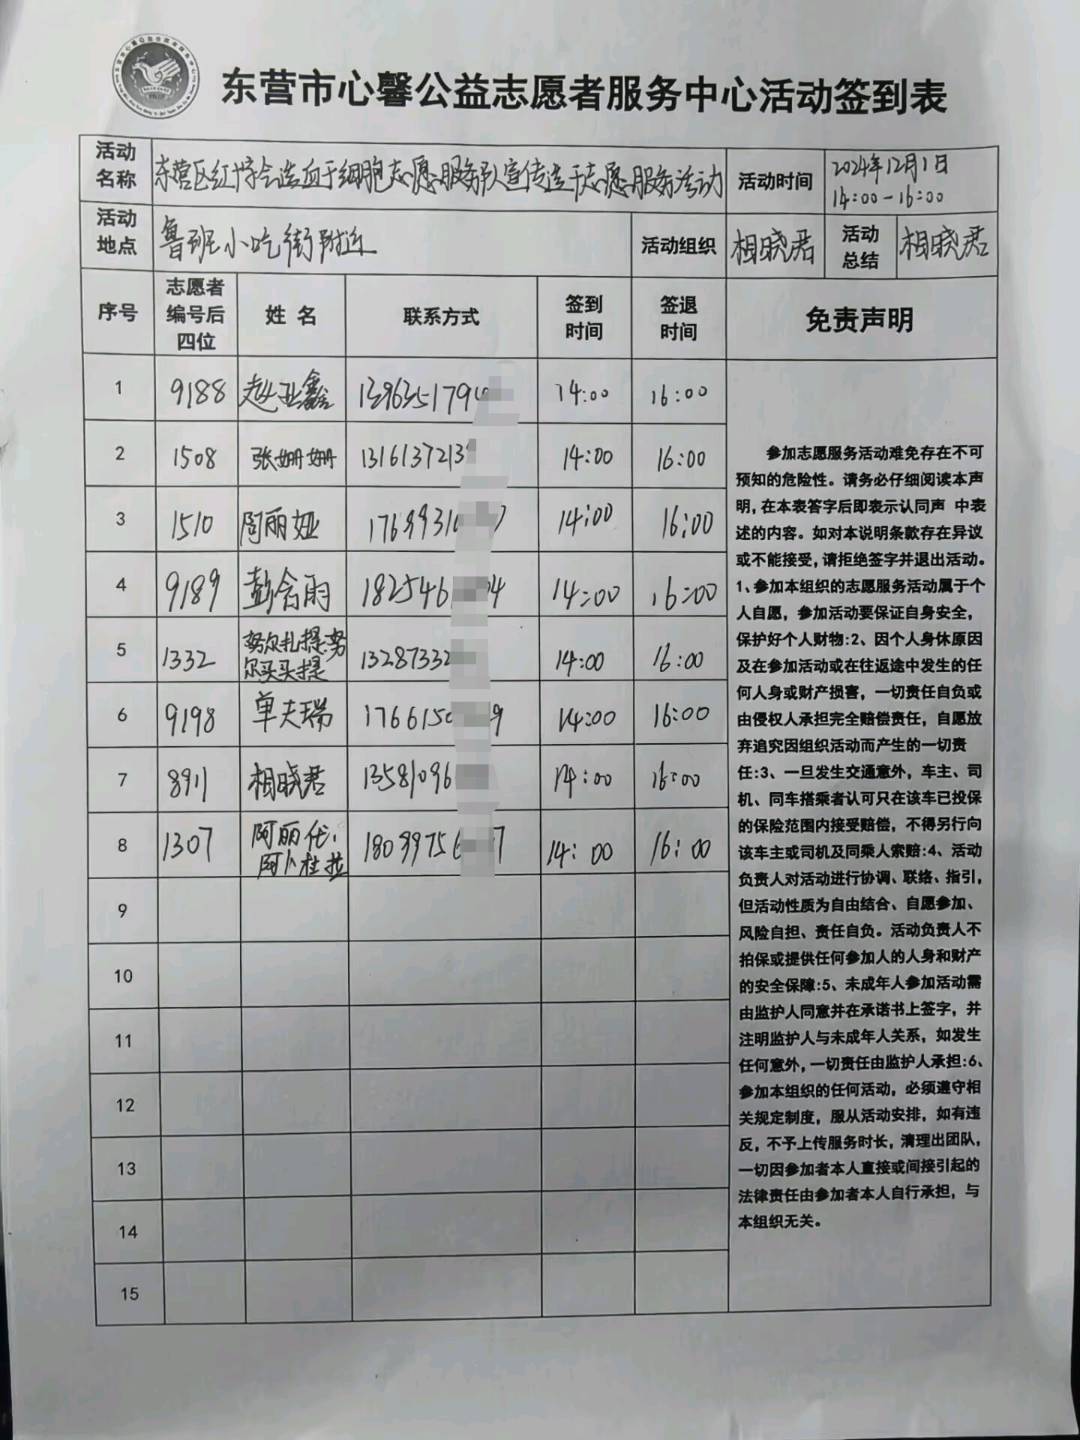 东营市心馨公益志愿者服务中心活动签到表
活动名称 东营区红十字会造血干细胞志愿服务队宣传造干志愿服务活动 活动时间 2024年12月1日 14:00-16:00
活动地点 鲁班小吃街附近 活动组织 相晓君 活动总结 相晓君
序号 志愿者编号后四位 姓名 联系方式 签到时间 签退时间 免责声明
1 9188 赵亚鑫 139635179 14:00 16:00
2 1508 张姗姗 1316137213 14:00 16:00
3 1510 陶丽娅 1769931 7 14:00 16:00
4 9189 彭含雨 182546 4 14:00 16:00
5 1332 努尔扎提·努尔买买提 13287332 14:00 16:00
6 9198 单夫瑞 1766150 9 14:00 16:00
7 8911 相晓君 13581096 14:00 16:00
8 1307 阿丽代·阿卜杜拉 18099756 7 14:00 16:00
9
10
11
12
13
14
15
参加志愿服务活动难免存在不可
预知的危险性。请务必仔细阅读本声
明,在本表签字后即表示认同声 中表
述的内容。如对本说明条款存在异议
或不能接受,请拒绝签字并退出活动。
1、参加本组织的志愿服务活动属于个
人自愿，参加活动要保证自身安全，
保护好个人财物:2、因个人身休原因
及在参加活动或在往返途中发生的任
何人身或财产损害，一切责任自负或
由侵权人承担完全赔偿责任，自愿放
弃追究因组织活动而产生的一切责
任:3、一旦发生交通意外，车主、司
机、同车搭乘者认可只在该车已投保
的保险范围内接受赔偿，不得另行向
该车主或司机及同乘人索赔:4、活动
负责人对活动进行协调、联络、指引，
但活动性质为自由结合、自愿参加、
风险自担、责任自负。活动负责人不
拍保或提供任何参加人的人身和财产
的安全保障:5、未成年人参加活动需
由监护人同意并在承诺书上签字，并
注明监护人与未成年人关系，如发生
任何意外,一切责任由监护人承担:6、
参加本组织的任何活动，必须遵守相
关规定制度，服从活动安排，如有违
反，不予上传服务时长，清理出团队，
一切因参加者本人直接或间接引起的
法律责任由参加者本人自行承担，与
本组织无关。